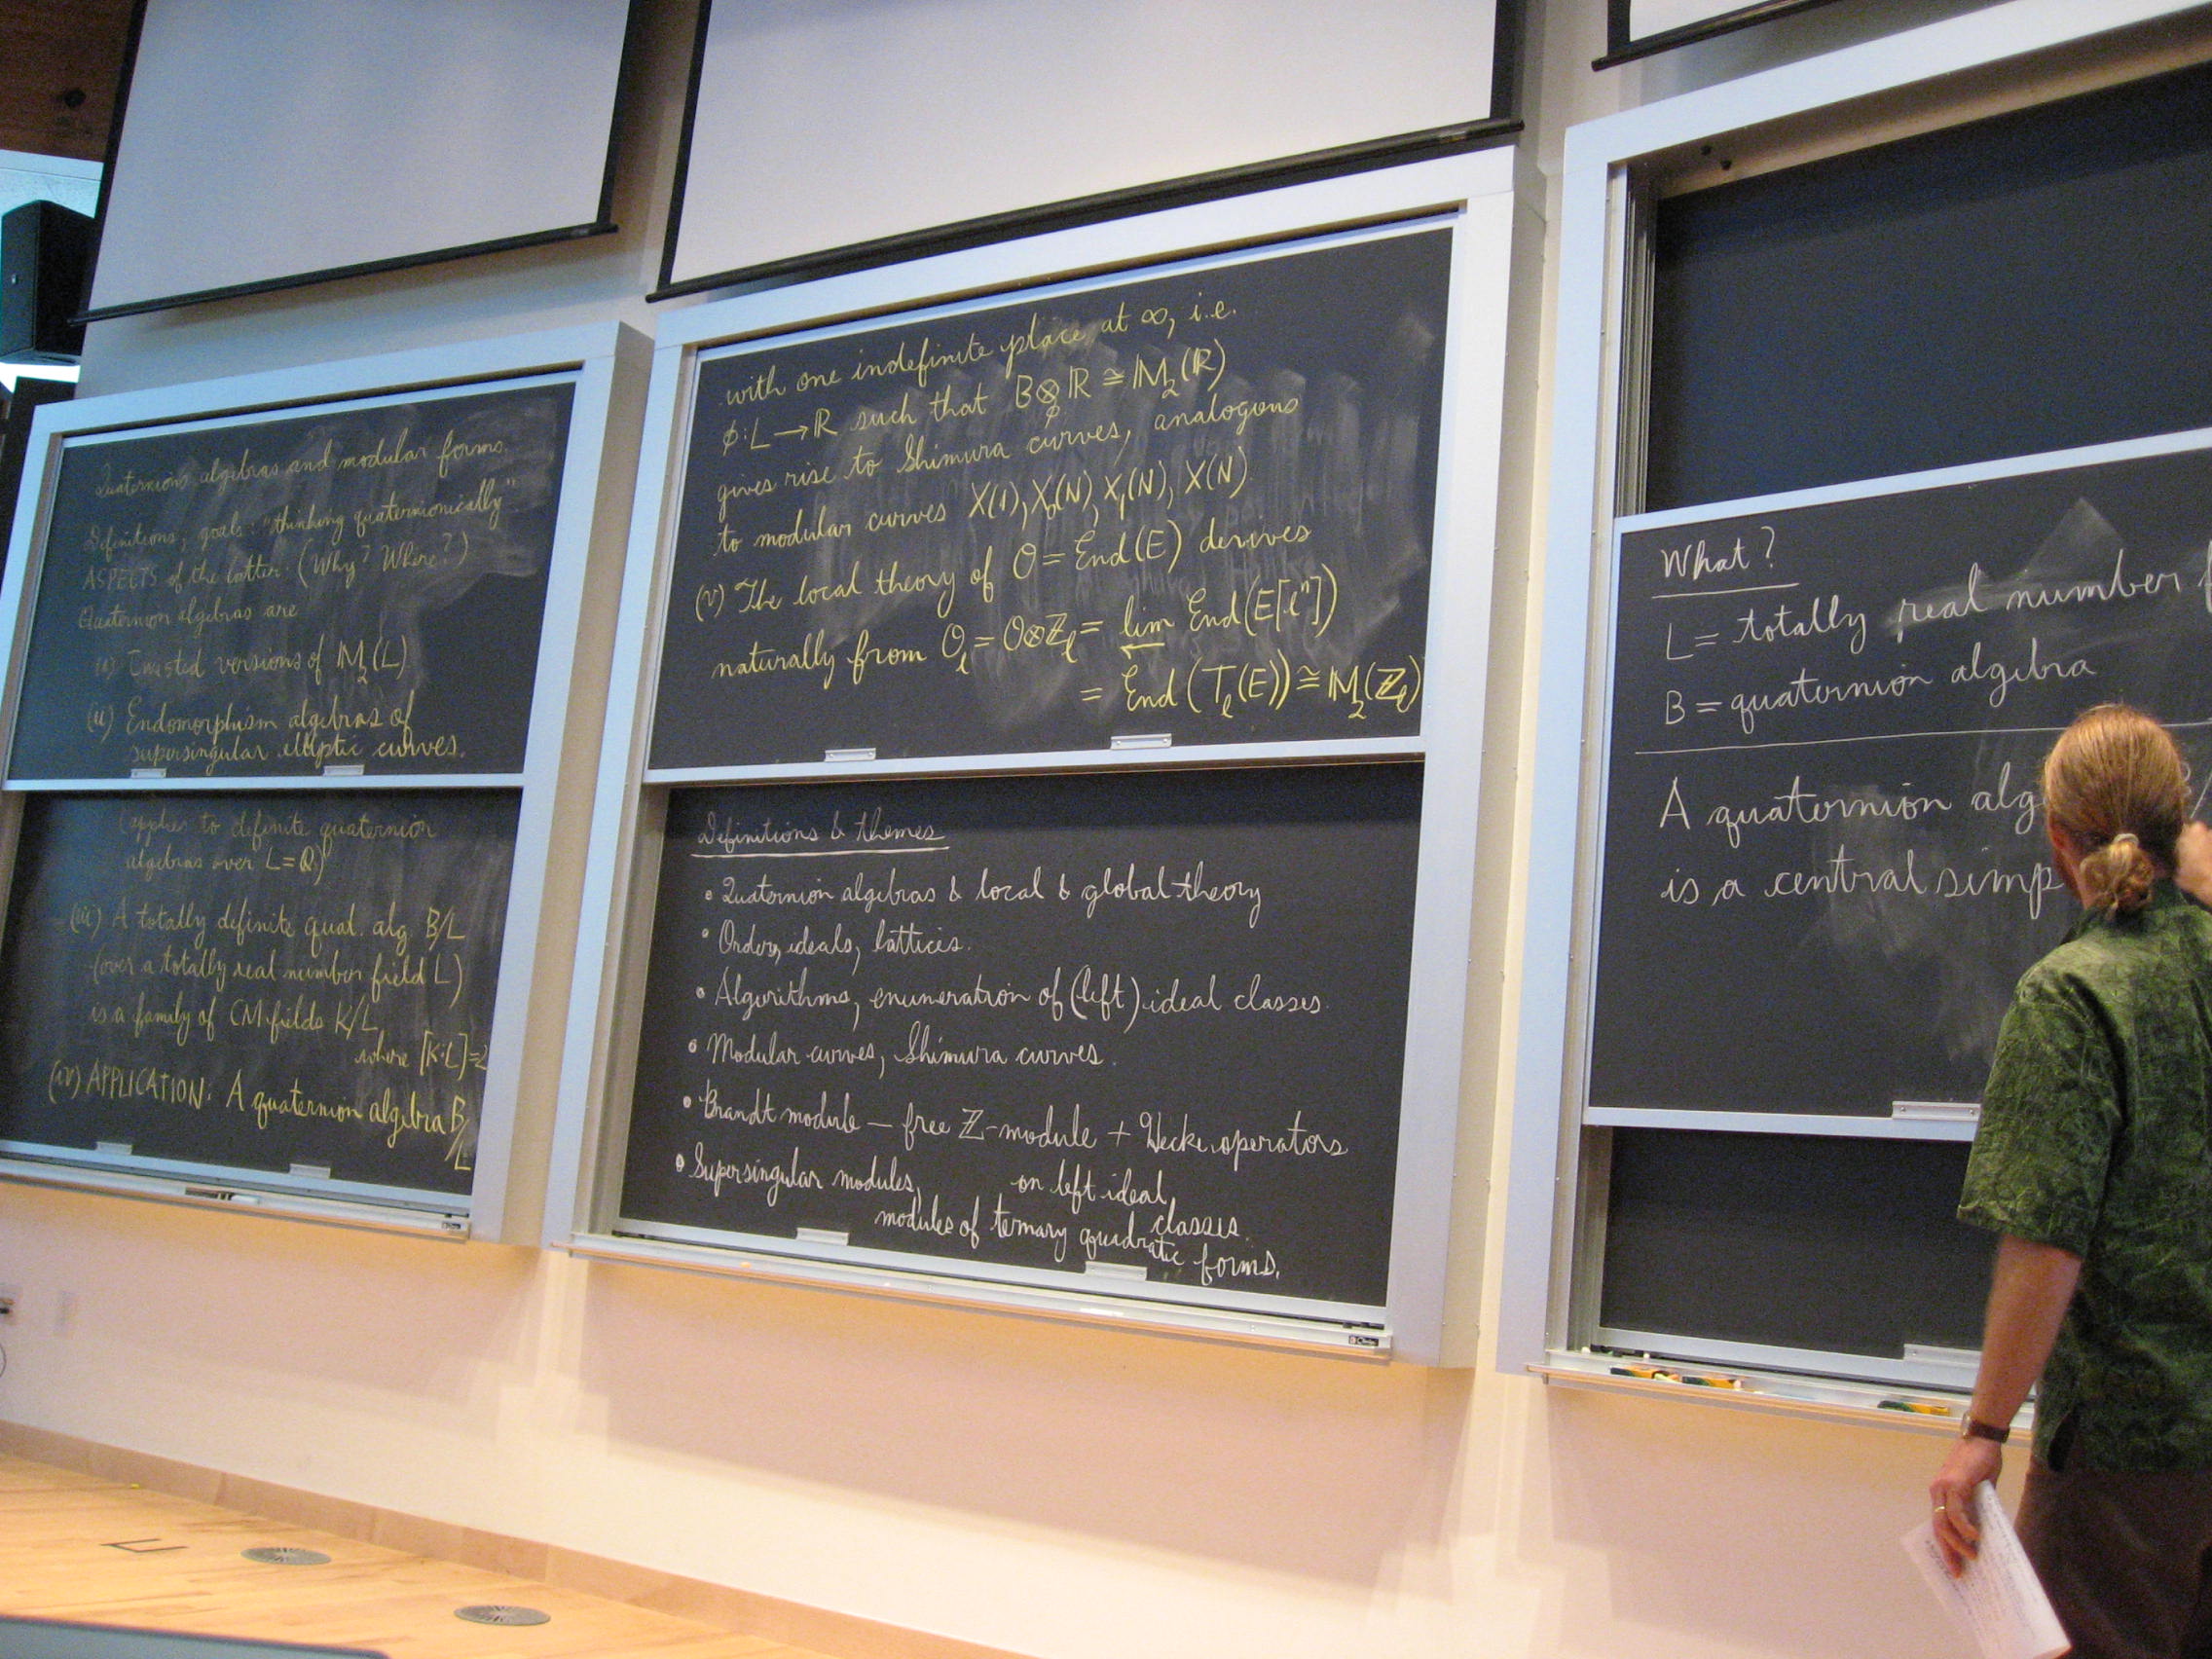 Quaternions algebras and modular forms.
Definitions, goals: "thinking quaternionically"
ASPECTS of the latter. (Why? Where?)
Quaternion algebras are
(i) Twisted versions of M₂(L)
(ii) Endomorphism algebras of
supersingular elliptic curves.
(applies to definite quaternion
algebras over L=Q)
(iii) A totally definite quat. alg. B/L
(over a totally real number field L)
is a family of CM fields K/L,
where [K:L]=2
(iv) APPLICATION: A quaternion algebra B/L
with one indefinite place at ∞, i.e.
φ: L → ℝ such that B⊗ℝ ≅ M₂(ℝ)
φ
gives rise to Shimura curves, analogous
to modular curves X(1), X₀(N), X₁(N), X(N).
(v) The local theory of O = End(E) derives
naturally from O_ℓ = O⊗ℤ_ℓ = lim← End(E[ℓⁿ])
= End(T_ℓ(E)) ≅ M₂(ℤ_ℓ)
Definitions & themes
• Quaternion algebras & local & global theory
• Orders, ideals, lattices.
• Algorithms, enumeration of (left) ideal classes.
• Modular curves, Shimura curves.
• Brandt module — free ℤ-module + Hecke operators
on left ideal
classes.
• Supersingular modules,
modules of ternary quadratic forms.
What?
L = totally real number
B = quaternion algebra
A quaternion alg
is a central simp